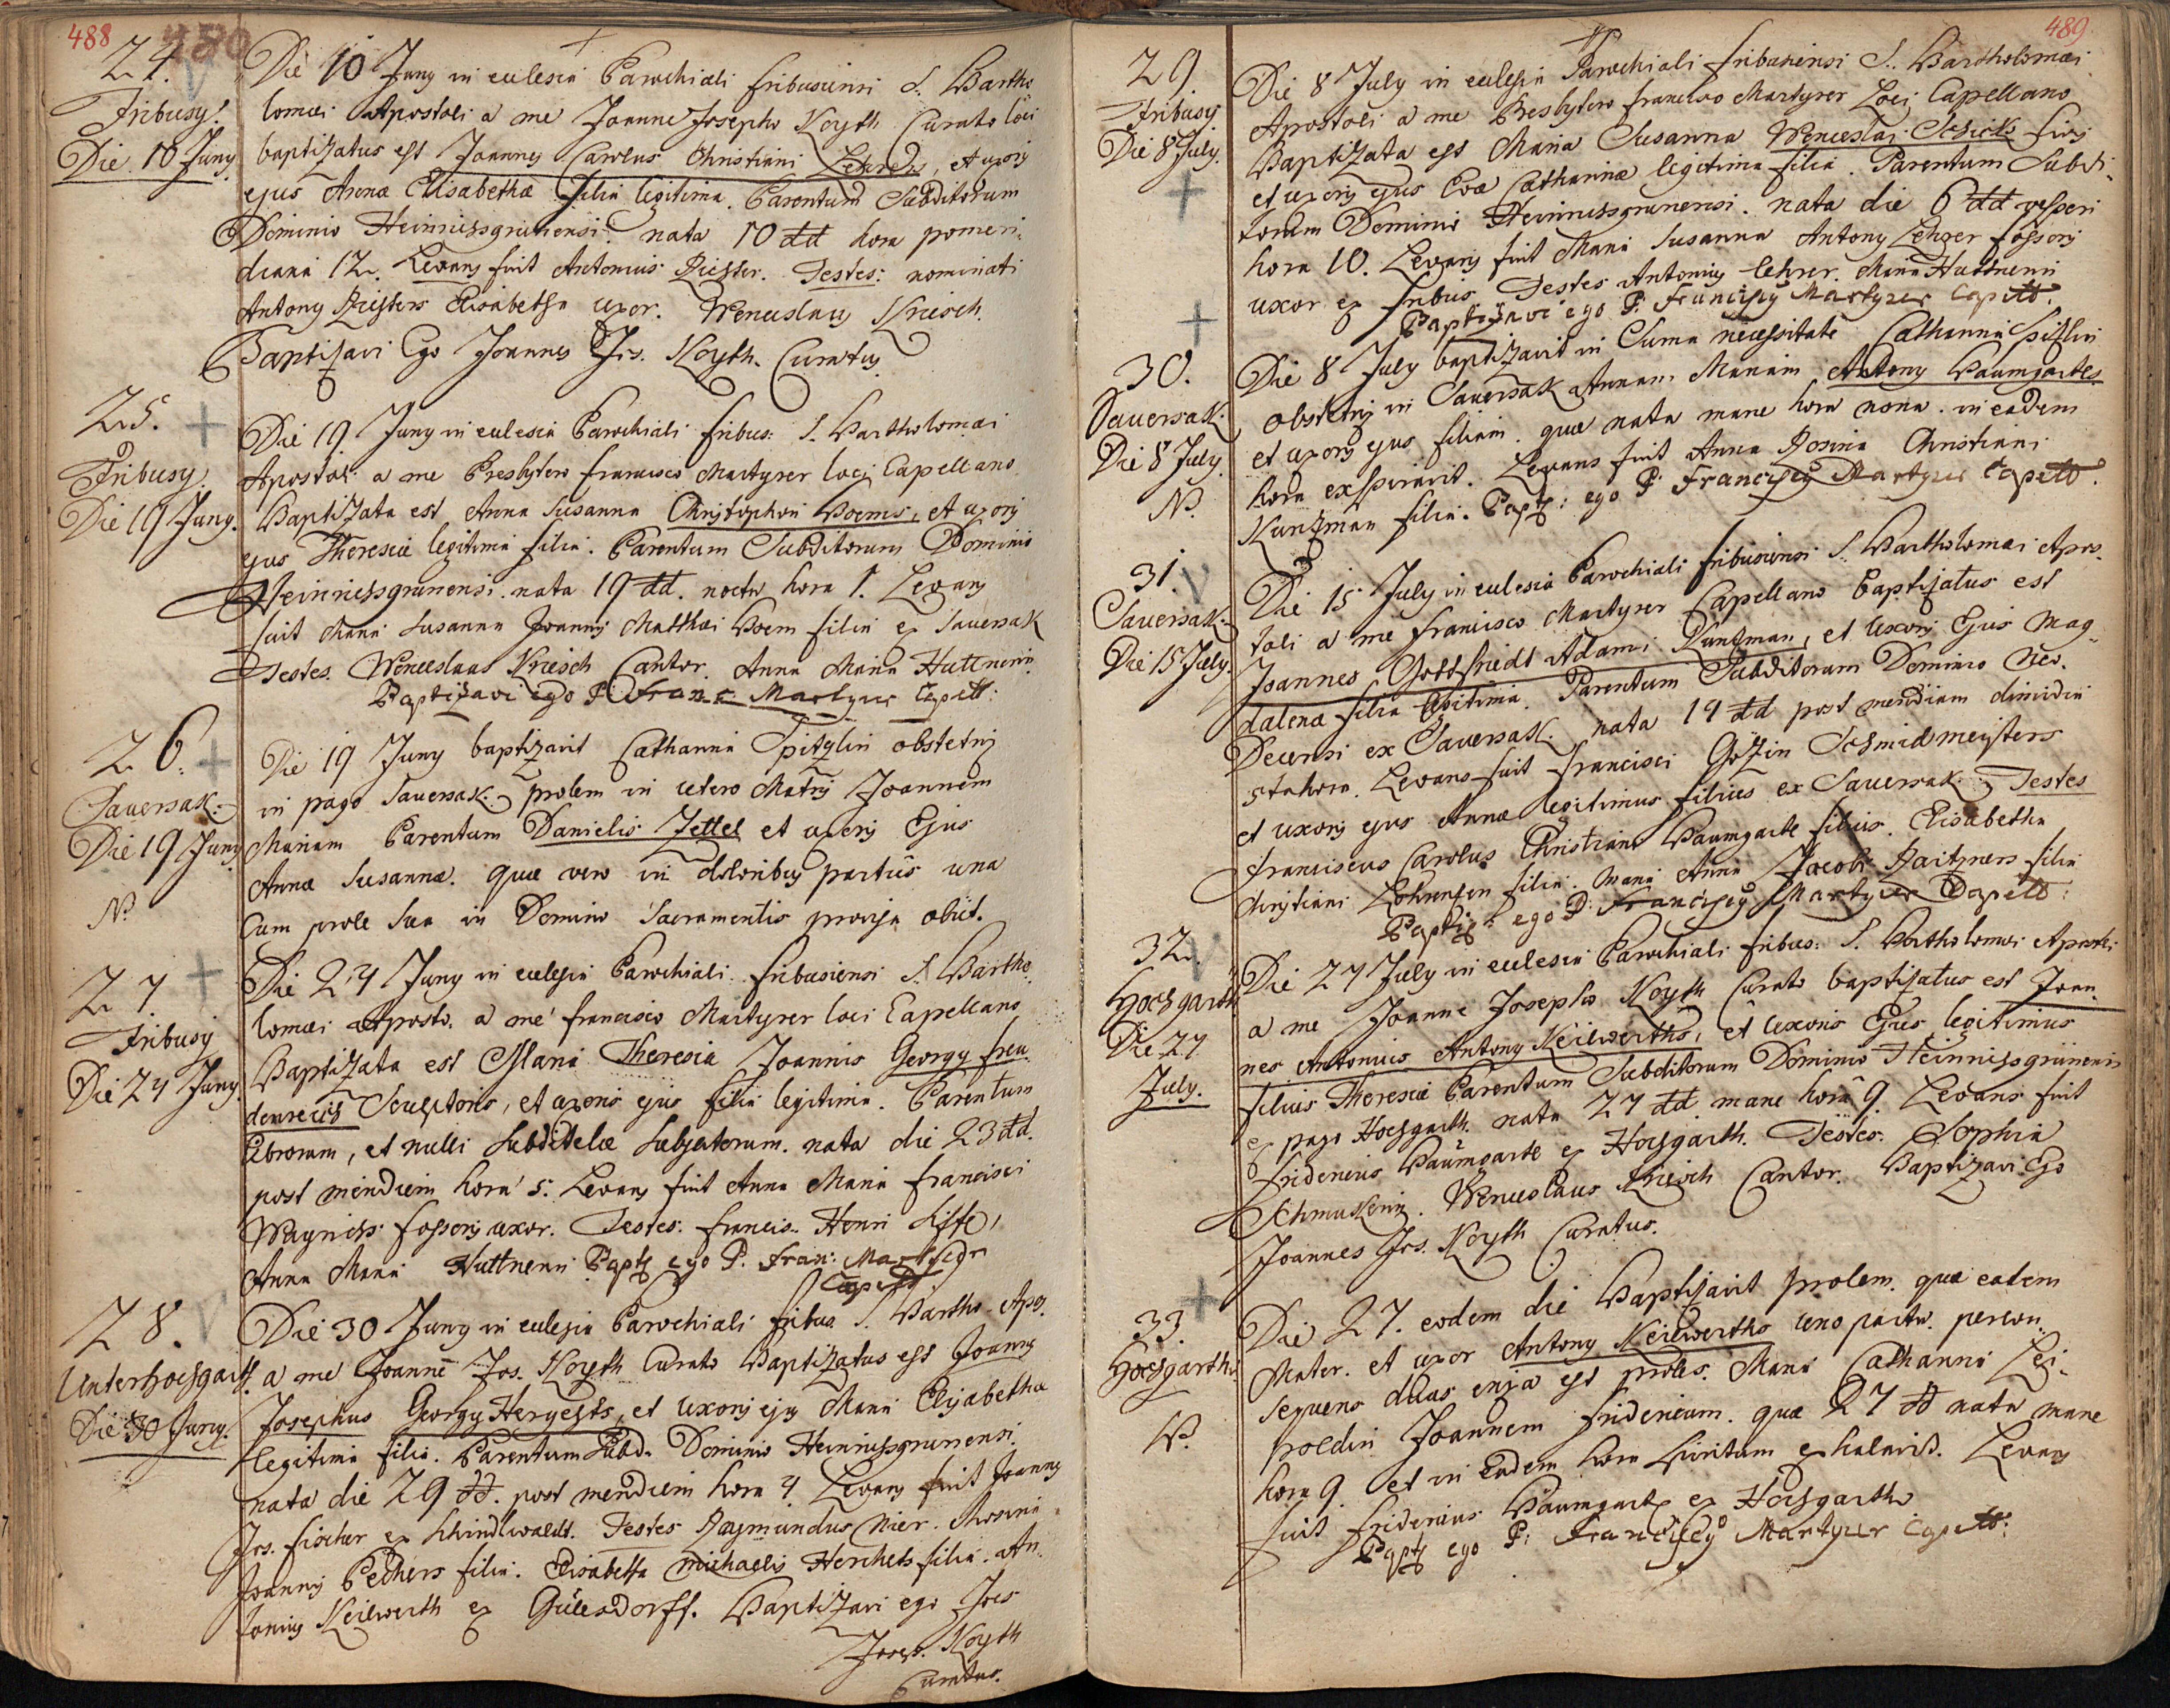 488
24.
Fribusy.
Die 10 Juny
Die 10 Juny in eclesia Parochiali fribusiensi S. Bartho
lomæi Apostoli a me Joanne Josepho Koyth Curato loci
baptizatus est Joannes Carolus Christiani Lehrers, et uxoris
ejus Annæ Elisabethæ filia legitima. Parentum Subditorum
Dominio Heinrichsgrünensi. nata 10 dd hora pomeri,,
diana 12. Levans fuit Antonius Richter. Testes: nominati
Antony Richters Elisabetha uxor. Wenceslaus Kriesch.
Baptizavi Ego Joannes Jos. Koyth. Curatus.
25.
Fribusy.
Die 19 Juny.
Die 19 Juny in eclesia Parochiali fribus: S. Bartholomæi
Apostoli a me Presbytero francisco Martyrer loci Capellano
Baptizata est Anna Susanna Christophori Boems, et uxoris
ejus Theresiæ legitima filia. Parentum Subditorum Dominio
Heinrichsgrünensi. nata 19 dd. noctu hora 1. Levans
fuit Maria Susanna Joannis Matthæi Boem filia ex Sauersak
Testes. Wenceslaus Kriesch Cantor. Anna Maria Huttnerin.
Baptizavi ego P. Franc Martyrer Capell:
26.
Sauersak.
Die 19 Juny
N.
Die 19 Juny baptizavit Catharina Spitzlin obstetrix
in pago Sauersak: prolem in utero Matris Joannem
Mariam Parentum Danielis Zettel et uxoris Ejus
Annæ Susannæ. quæ vero in doloribus partûs una
Cum prole sua in Domino Sacramentis provisa obiit.
27
Fribusy
Die 24 Juny.
Die 24 Juny in eclesia Parochiali fribusiensi S. Bartho,,
lomæi Aposto. a me francisco Martyrer loci Capellano
Baptizata est Maria Theresia Joannis Georgy freu
denreichs Sculptoris, et uxoris ejus filia legitima. Parentum
Librorum, et nulli Subditelæ Subjectorum. nata die 23 dd.
post meridiem hora 5. Levans fuit Anna Maria Francisci
Wagnichs fossoris uxor. Testes: francis. Henri
Anna Maria Huttnerin Baptz ego P. Fran: Martyrer
Capell
28.
Unterhochgarth.
Die 30 Juny.
Die 30 Juny in eclesia Parochiali fribus. S. Bartho. Apos.
a me Joanne Jos. Koyth Curato Baptizatus est Joannes
Josephus Georgy Hergeths, et uxoris ejus Maria Elisabethæ
legitima filia. Parentum Subd. Dominio Heinrichsgrünensi
nata die 29 dd. post meridiem hora 4 Levans fuit Joannes
Jos. fischer ex Schindlwaldt. Testes Raymundus Nier. Rosina
Joannis Pechers filia. Elisabetha Michaelis Herchets filia. An,,
tonius Keilwerth ex Gülersdorff. Baptizavi ego Joes
Joseph. Koyth
Curatus.
489.
29.
Fribusy
Die 8 July.
Die 8 July in eclesia Parochiali fribusiensi S. Bartholomæi
Apostoli a me Presbytero francisco Martyrer Loci Capellano
Baptizata est Maria Susanna Wenceslai Schicks
et uxoris ejus Evæ Catharinæ legitima filia. Parentum Subdi,,
torum Dominio Heinrichsgrünensi. nata die 6 dd vesperi
hora 10. Levans fuit Maria Susanna Antony Lehrer fossoris
uxor ex fribus. Testes Antonius Lehrer. Maria Huttnerin
Baptizavi ego P. Franciscy Martyrer Capell.
30.
Sauersak.
Die 8 July.
N.
Die 8 July baptizavit in Suma necessitate Catharina Spitzlin
obstetrix in Sauersak Annam Mariam Antony Baumgartls
et uxoris ejus filiam. quæ nata mane hora nona. in eadem
hora expiravit. Levans fuit Anna Rosina Christiani
Kuntzman filia. Baptz: ego P. Franciscy Martyrer Capell.
31.
Sauersak.
Die 15 July.
Die 15 July in eclesia Parochiali fribusiensi S. Bartholomæi Apos,,
toli a me francisco Martyrer Capellano baptizatus est
Joannes Gottfriedt Adami Kuntzman, et Uxoris Ejus Mag,,
dalenæ filia legitima. Parentum Subditorum Dominio Neo,,
Decensi ex Sauersak. nata 14 dd post meridiem dimidia
5ta hora. Levans fuit francisci Götzin Schmidmeisters
et uxoris ejus Annæ legitimus filius ex Sauersak. Testes
franciscus Carolus Christiani Baumgarte filius. Elisabetha
Christiani filia. Maria Anna Jacobi filia
Baptiz: ego P: Franciscy Martyrer Capell:
32.
Hochgarth.
Die 27
July.
Die 27 July in eclesia Parochiali fribus: S. Bartholomæi Apostoli
a me Joanne Josepho Koyth Curato baptizatus est Joan,,
nes Antonius Antony Keilwerths, et Uxoris Ejus legitimus
filius Theresiæ Parentum Subditorum Dominio Heinrichsgrünensi
ex pago Hochgarth. nata 27 dd mane hora 9. Levans fuit
fridericus Baumgarte ex Hochgarth. Testes. Sophia
Schmukerin. Wenceslaus Kriesch Cantor. Baptizavi Ego
Joannes Jos. Koyth Curatus.
33.
Hochgarth.
N.
Die 27. eodem die Baptizavit prolem. quæ eadem
Mater. et uxor Antony Keilwerths uno partu. person,,
sequens duas enixa est proles. Maria Catharina Lei,,
poldin Joannem fridericum. quæ 27 dd nata mane
hora 9. et in Eadem hora Spiritum exhalavit. Levans
fuit fridericus Baumgarte ex Hochgarth
Baptz ego P: Franciscy Martyrer Capell: